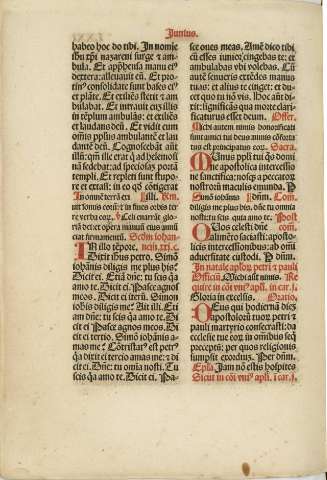 Junius.
habeo hoc do tibi. In nomie
ihu xpi nazareni surge & am
bula. Et apphensa manu ei⁹
dextera: alleuauit eū. Et pro
tin⁹ consolidate sunt bases ei⁹
et plāte. Et exiliēs stetit et am
bulabat. Et intrauit cū illis
in tēplum ambulās: et exiliēs
et laudans deū. Et vidit eum
omīs ppl̄us ambulantē et lau
dantē deū. Cognoscebāt aūt
illū: qm̄ ille erat q̄ ad helemosi
nā sedebat: ad speciosaȝ portā
templi. Et repleti sunt stupo
re et extasi: in eo qd̄ cōtigerat
In omnē terrā exi
uit sonus eorū: et in fines orbis ter
re verba eoꝝ. ℣ Celi enarrāt glo
riā dei: et opera manuū eius annū
ciat firmamentū. Scdm̄ iohan̄
In illo tēpore.
Dixit ihus petro. Simō
iohānis diligis me plus his?
Dicit ei. Etiā dn̄e: tu scis q̄a
amo te. Dicit ei. Pasce agnos
meos. Dicit ei iterū. Simon
iohānis diligis me? Ait illi. Eti
am dn̄e: tu scis q̄a amo te. Di
cit ei Pasce agnos meos. Di
cit ei tertio. Simō iohānis a
mas me? Cōtristat⁹ est petr⁹
q̄a dixit ei tercio amas me? & di
cit ei. Dn̄e: tu om̄ia nosti. Tu
scis q̄a amo te. Dicit ei. Pa-
sce oues meas. Amē dico tibi
cū esses iunior, cingebas te: et
ambulabas vbi volebas. Cū
autē senueris extēdes manus
tuas: et alius te cinget: et du
cet quo tu nō vis. Hoc aūt di
xit: significās qua morte clari
ficaturus esset deum. Offer.
Michi autem nimis honorificati
sunt amici tui deus: nimis cōforta
tus est principatus eorū. Sacra.
Munus pplī tui q̄s̄ domi
ne apostolica intercessio
ne sanctifica: nosq̄ȝ a peccatorū
nostroꝝ maculis emunda. P
Simō iohānis Com.
diligis me plus his. dn̄e tu omnia
nosti: tu scis quia amo te. Post
Quos celesti dn̄e com.
alimēto saciasti: aposto-
licis intercessionibus ab om̄i
aduersitate custodi. P dn̄m.
In natale aploꝝ petri & pauli
Officiū. Michi aūt nimis. Re
quire in cōi vni⁹ apl̄i. in car. l.
Gloria in excelsis. Oratio.
Deus qui hodiernā diem
apostoloꝝ tuoꝝ petri &
pauli martyrio consecrasti: da
ecclesie tue eoꝝ in omnibus seq̄
preceptū: per quos religionis
sumpsit exordiū. Per dn̄m.
Epl̄a. Jam nō estis hospites
Sicut in cōi vni⁹ apl̄i. in car. l.